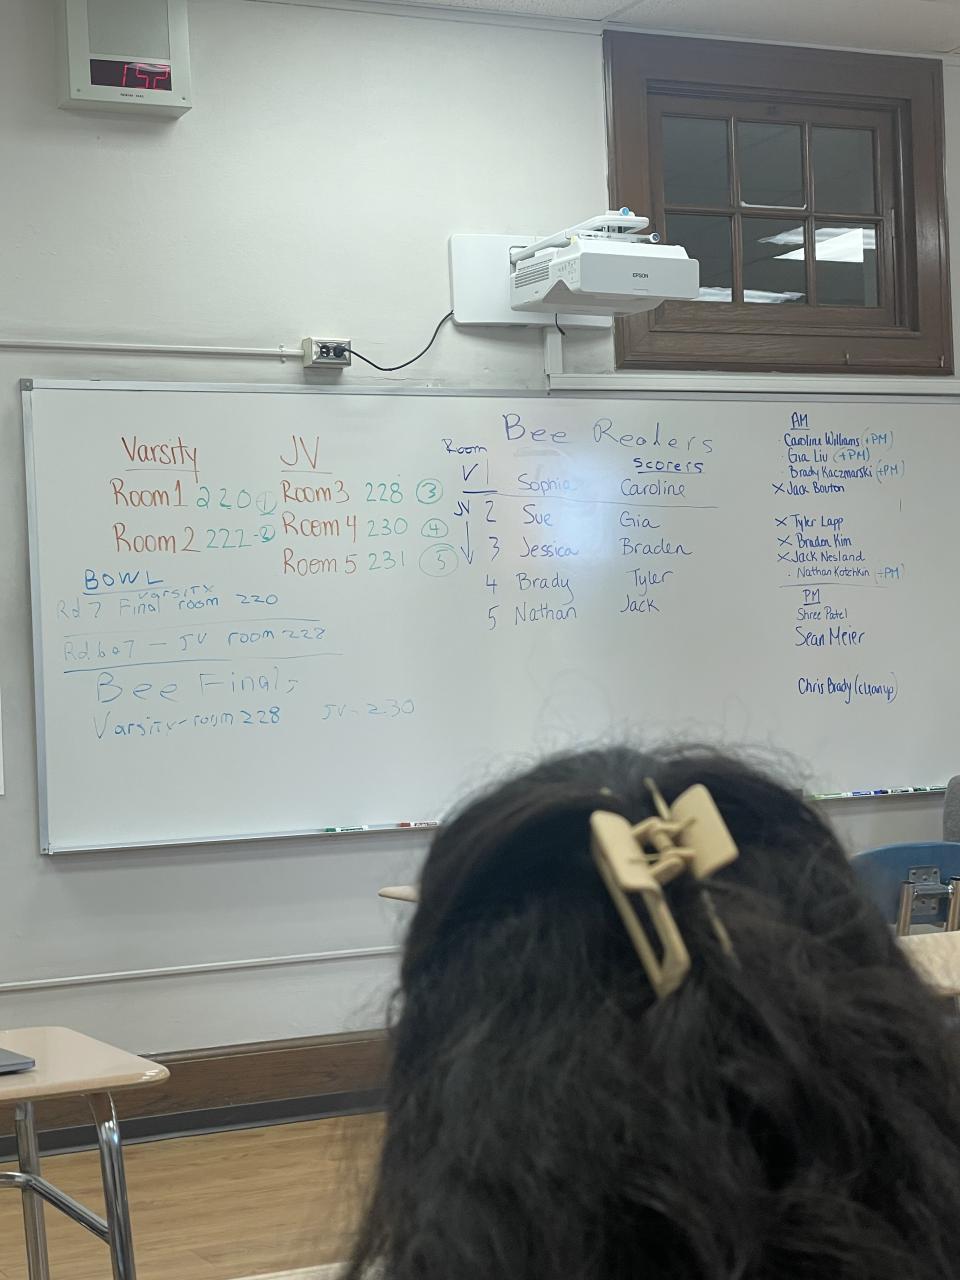 1:52
EPSON
Varsity
Room 1 220 1
Room 2 222
JV
Room 3 228 3
Room 4 230 4
Room 5 231 5
BOWL
varsity
Rd 7 Final room 220
Rd. 6 o 7 — JV room 222
Bee Finals
Varsity-room 228 JV-230
Bee Readers
Room scorers
V 1 Sophia Caroline
JV 2 Sue Gia
3 Jessica Braden
4 Brady Tyler
5 Nathan Jack
AM
Caroline Williams (+PM)
Gia Liu (+PM)
Brady Kaczmarski (+PM)
X Jack Bouton
X Tyler Lapp
X Braden Kim
X Jack Nesland
Nathan Kotchkin (+PM)
PM
Shree Patel
Sean Meier
Chris Brady (cleanup)